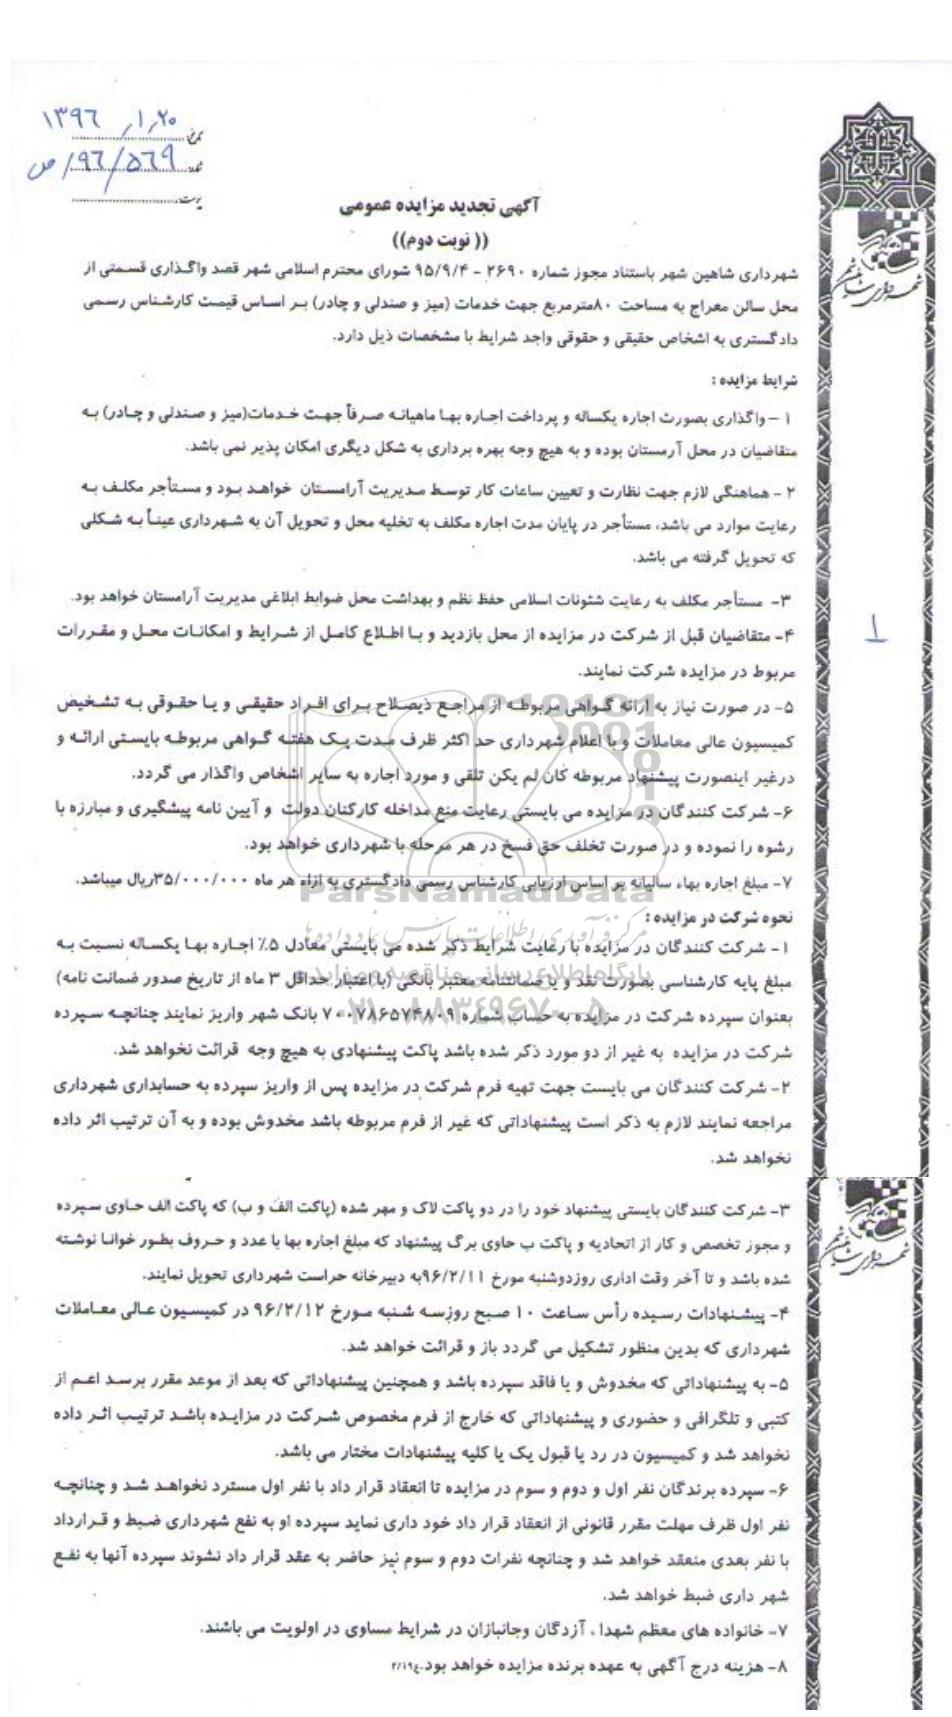 تاریخ: ۱۳۹۶/۱/۲۰
شماره: ۹۶/۵۶۹/ص
پیوست:
آگهی تجدید مزایده عمومی
(( نوبت دوم))
شهرداری شاهین شهر باستناد مجوز شماره ۲۶۹۰ - ۹۵/۹/۴ شورای محترم اسلامی شهر قصد واگذاری قسمتی از
محل سالن معراج به مساحت ۸۰مترمربع جهت خدمات (میز و صندلی و چادر) بر اساس قیمت کارشناس رسمی
دادگستری به اشخاص حقیقی و حقوقی واجد شرایط با مشخصات ذیل دارد.
شرایط مزایده :
۱ – واگذاری بصورت اجاره یکساله و پرداخت اجاره بها ماهیانه صرفاً جهت خدمات(میز و صندلی و چادر) به
متقاضیان در محل آرمستان بوده و به هیچ وجه بهره برداری به شکل دیگری امکان پذیر نمی باشد.
۲ - هماهنگی لازم جهت نظارت و تعیین ساعات کار توسط مدیریت آرامستان خواهد بود و مستأجر مکلف به
رعایت موارد می باشد، مستأجر در پایان مدت اجاره مکلف به تخلیه محل و تحویل آن به شهرداری عیناً به شکلی
که تحویل گرفته می باشد.
۳- مستأجر مکلف به رعایت شئونات اسلامی حفظ نظم و بهداشت محل ضوابط ابلاغی مدیریت آرامستان خواهد بود.
۴- متقاضیان قبل از شرکت در مزایده از محل بازدید و با اطلاع کامل از شرایط و امکانات محل و مقررات
مربوط در مزایده شرکت نمایند.
۵- در صورت نیاز به ارائه گواهی مربوطه از مراجع ذیصلاح برای افراد حقیقی و یا حقوقی به تشخیص
کمیسیون عالی معاملات و با اعلام شهرداری حد اکثر ظرف مدت یک هفته گواهی مربوطه بایستی ارائه و
درغیر اینصورت پیشنهاد مربوطه کان لم یکن تلقی و مورد اجاره به سایر اشخاص واگذار می گردد.
۶- شرکت کنندگان در مزایده می بایستی رعایت منع مداخله کارکنان دولت و آیین نامه پیشگیری و مبارزه با
رشوه را نموده و در صورت تخلف حق فسخ در هر مرحله با شهرداری خواهد بود.
۷- مبلغ اجاره بهاء سالیانه بر اساس ارزیابی کارشناس رسمی دادگستری به ازاء هر ماه ۳۵/۰۰۰/۰۰۰ریال میباشد.
نحوه شرکت در مزایده :
۱- شرکت کنندگان در مزایده با رعایت شرایط ذکر شده می بایستی معادل ۵٪ اجاره بها یکساله نسبت به
مبلغ پایه کارشناسی بصورت نقد و یا ضمانتنامه معتبر بانکی (با اعتبار حداقل ۳ ماه از تاریخ صدور ضمانت نامه)
بعنوان سپرده شرکت در مزایده به حساب شماره ۷۰۰۷۸۶۵۷۴۸۰۹ بانک شهر واریز نمایند چنانچه سپرده
شرکت در مزایده به غیر از دو مورد ذکر شده باشد پاکت پیشنهادی به هیچ وجه قرائت نخواهد شد.
۲- شرکت کنندگان می بایست جهت تهیه فرم شرکت در مزایده پس از واریز سپرده به حسابداری شهرداری
مراجعه نمایند لازم به ذکر است پیشنهاداتی که غیر از فرم مربوطه باشد مخدوش بوده و به آن ترتیب اثر داده
نخواهد شد.
۳- شرکت کنندگان بایستی پیشنهاد خود را در دو پاکت لاک و مهر شده (پاکت الف و ب) که پاکت الف حاوی سپرده
و مجوز تخصص و کار از اتحادیه و پاکت ب حاوی برگ پیشنهاد که مبلغ اجاره بها با عدد و حروف بطور خوانا نوشته
شده باشد و تا آخر وقت اداری روزدوشنبه مورخ ۹۶/۲/۱۱به دبیرخانه حراست شهرداری تحویل نمایند.
۴- پیشنهادات رسیده رأس ساعت ۱۰ صبح روزسه شنبه مورخ ۹۶/۲/۱۲ در کمیسیون عالی معاملات
شهرداری که بدین منظور تشکیل می گردد باز و قرائت خواهد شد.
۵- به پیشنهاداتی که مخدوش و یا فاقد سپرده باشد و همچنین پیشنهاداتی که بعد از موعد مقرر برسد اعم از
کتبی و تلگرافی و حضوری و پیشنهاداتی که خارج از فرم مخصوص شرکت در مزایده باشد ترتیب اثر داده
نخواهد شد و کمیسیون در رد یا قبول یک یا کلیه پیشنهادات مختار می باشد.
۶- سپرده برندگان نفر اول و دوم و سوم در مزایده تا انعقاد قرار داد با نفر اول مسترد نخواهد شد و چنانچه
نفر اول ظرف مهلت مقرر قانونی از انعقاد قرار داد خود داری نماید سپرده او به نفع شهرداری ضبط و قرارداد
با نفر بعدی منعقد خواهد شد و چنانچه نفرات دوم و سوم نیز حاضر به عقد قرار داد نشوند سپرده آنها به نفع
شهر داری ضبط خواهد شد.
۷- خانواده های معظم شهدا ، آزدگان وجانبازان در شرایط مساوی در اولویت می باشند.
۸- هزینه درج آگهی به عهده برنده مزایده خواهد بود.
ParsNamadData
پایگاه اطلاع رسانی مناقصه و مزایده
۰۲۱-۸۸۳۴۹۶۷۰-۵